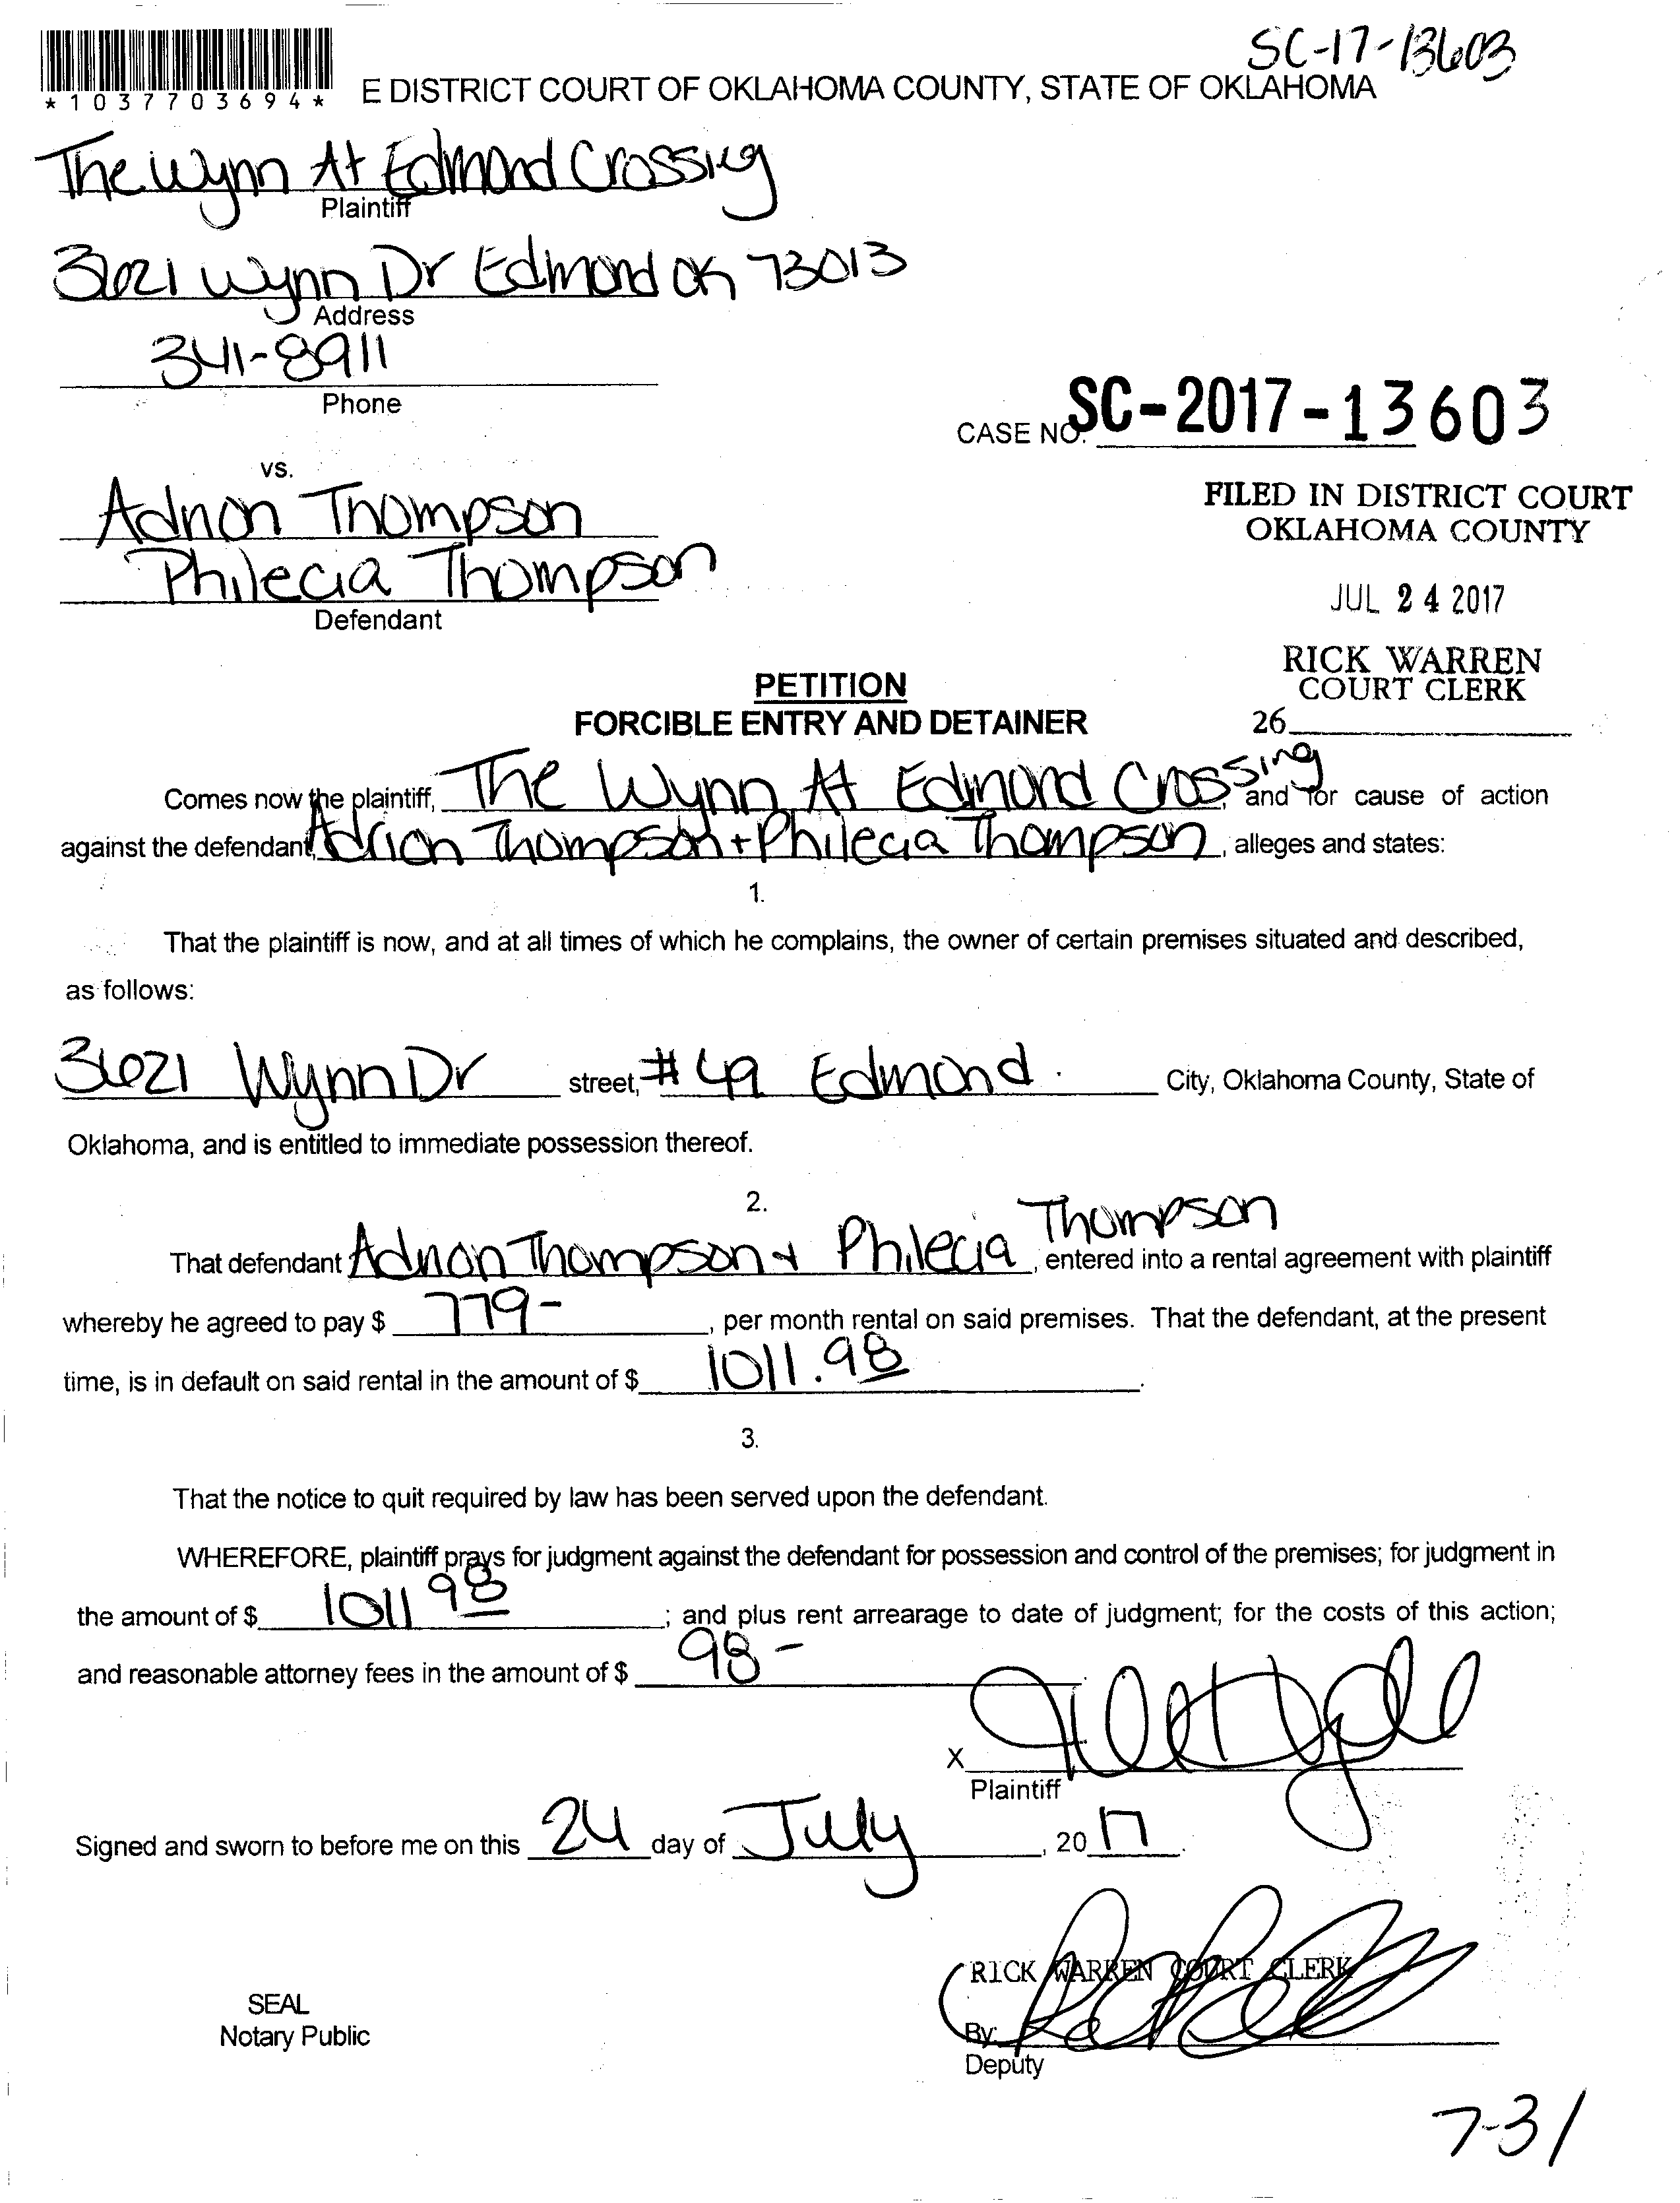 SC-17-13603
*1037703694*
E DISTRICT COURT OF OKLAHOMA COUNTY, STATE OF OKLAHOMA
The Wynn At Edmond Crossing
Plaintiff
3621 Wynn Dr Edmond OK 73013
Address
341-8911
Phone
CASE NO. SC-2017-13603
vs.
FILED IN DISTRICT COURT
OKLAHOMA COUNTY
Adrion Thompson
Philecia Thompson
Defendant
JUL 24 2017
RICK WARREN
COURT CLERK
26
PETITION
FORCIBLE ENTRY AND DETAINER
Comes now the plaintiff, The Wynn At Edmond Crossing, and for cause of action
against the defendant, Adrion Thompson + Philecia Thompson, alleges and states:
1.
That the plaintiff is now, and at all times of which he complains, the owner of certain premises situated and described,
as follows:
3621 Wynn Dr street, #49 Edmond City, Oklahoma County, State of
Oklahoma, and is entitled to immediate possession thereof.
2.
That defendant Adrion Thompson + Philecia Thompson, entered into a rental agreement with plaintiff
whereby he agreed to pay $ 779-, per month rental on said premises. That the defendant, at the present
time, is in default on said rental in the amount of $ 1011.98.
3.
That the notice to quit required by law has been served upon the defendant.
WHEREFORE, plaintiff prays for judgment against the defendant for possession and control of the premises; for judgment in
the amount of $ 1011 98; and plus rent arrearage to date of judgment; for the costs of this action;
and reasonable attorney fees in the amount of $ 98-
X
Plaintiff
Signed and sworn to before me on this 24 day of July, 2017.
RICK WARREN COURT CLERK
SEAL
Notary Public
By:
Deputy
7-31